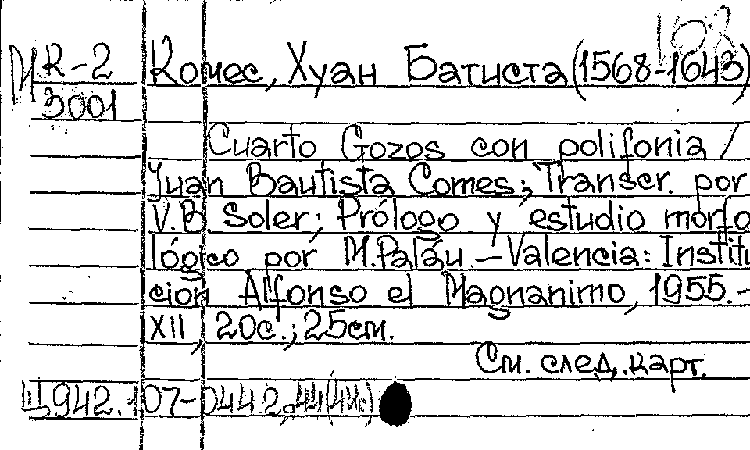 108
М R-2 Комес, Хуан Батиста (1568-1643)
3001
Cuarto Gozos con polifonia /
Juan Bautista Comes; Transcr. por
V.B. Soler; Prólogo y estudio morfo
lógico por M.Paláu.-Valencia: Institu
cion Alfonso el Magnanimo, 1955.-
XII, 20с.; 25cm.
См. след. карт.
Ц942.107-044.2,